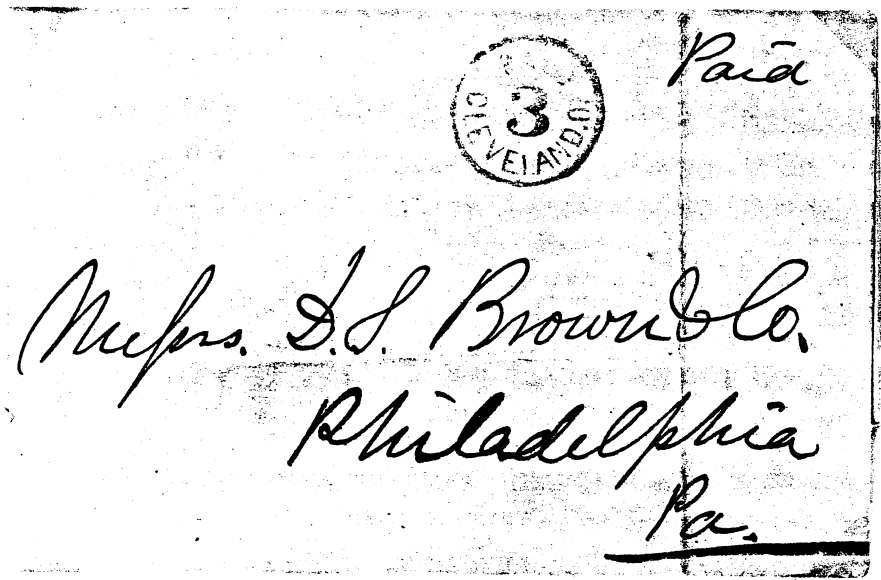 Paid
3
CLEVELAND.O.
Messrs. D.S. Brown & Co.
Philadelphia
Pa.